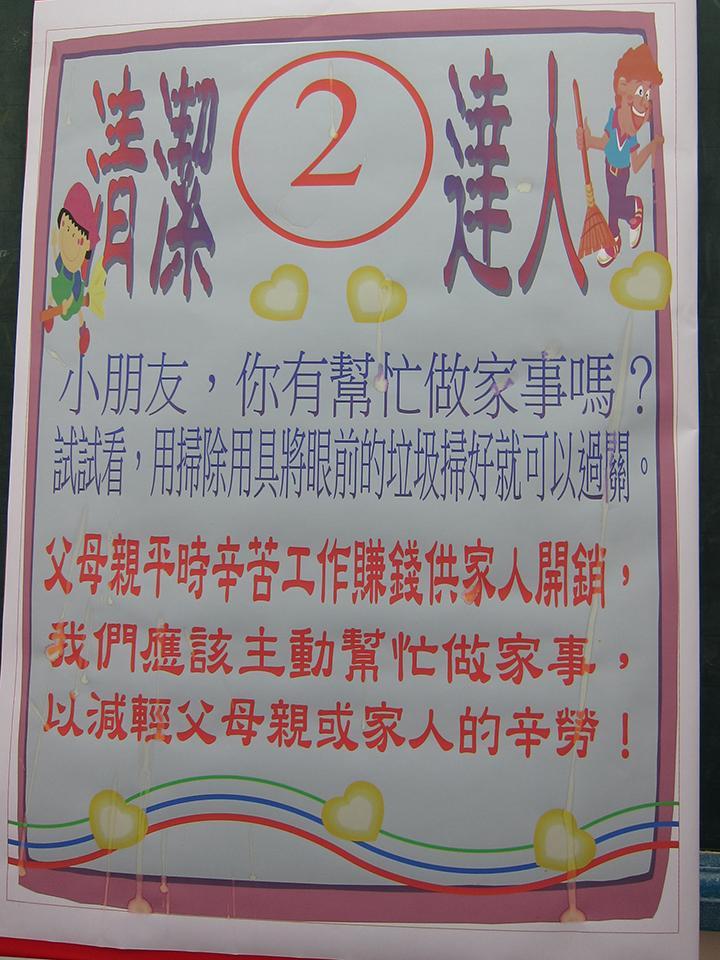 清潔 2 達人
小朋友，你有幫忙做家事嗎？
試試看，用掃除用具將眼前的垃圾掃好就可以過關。
父母親平時辛苦工作賺錢供家人開銷，
我們應該主動幫忙做家事，
以減輕父母親或家人的辛勞！